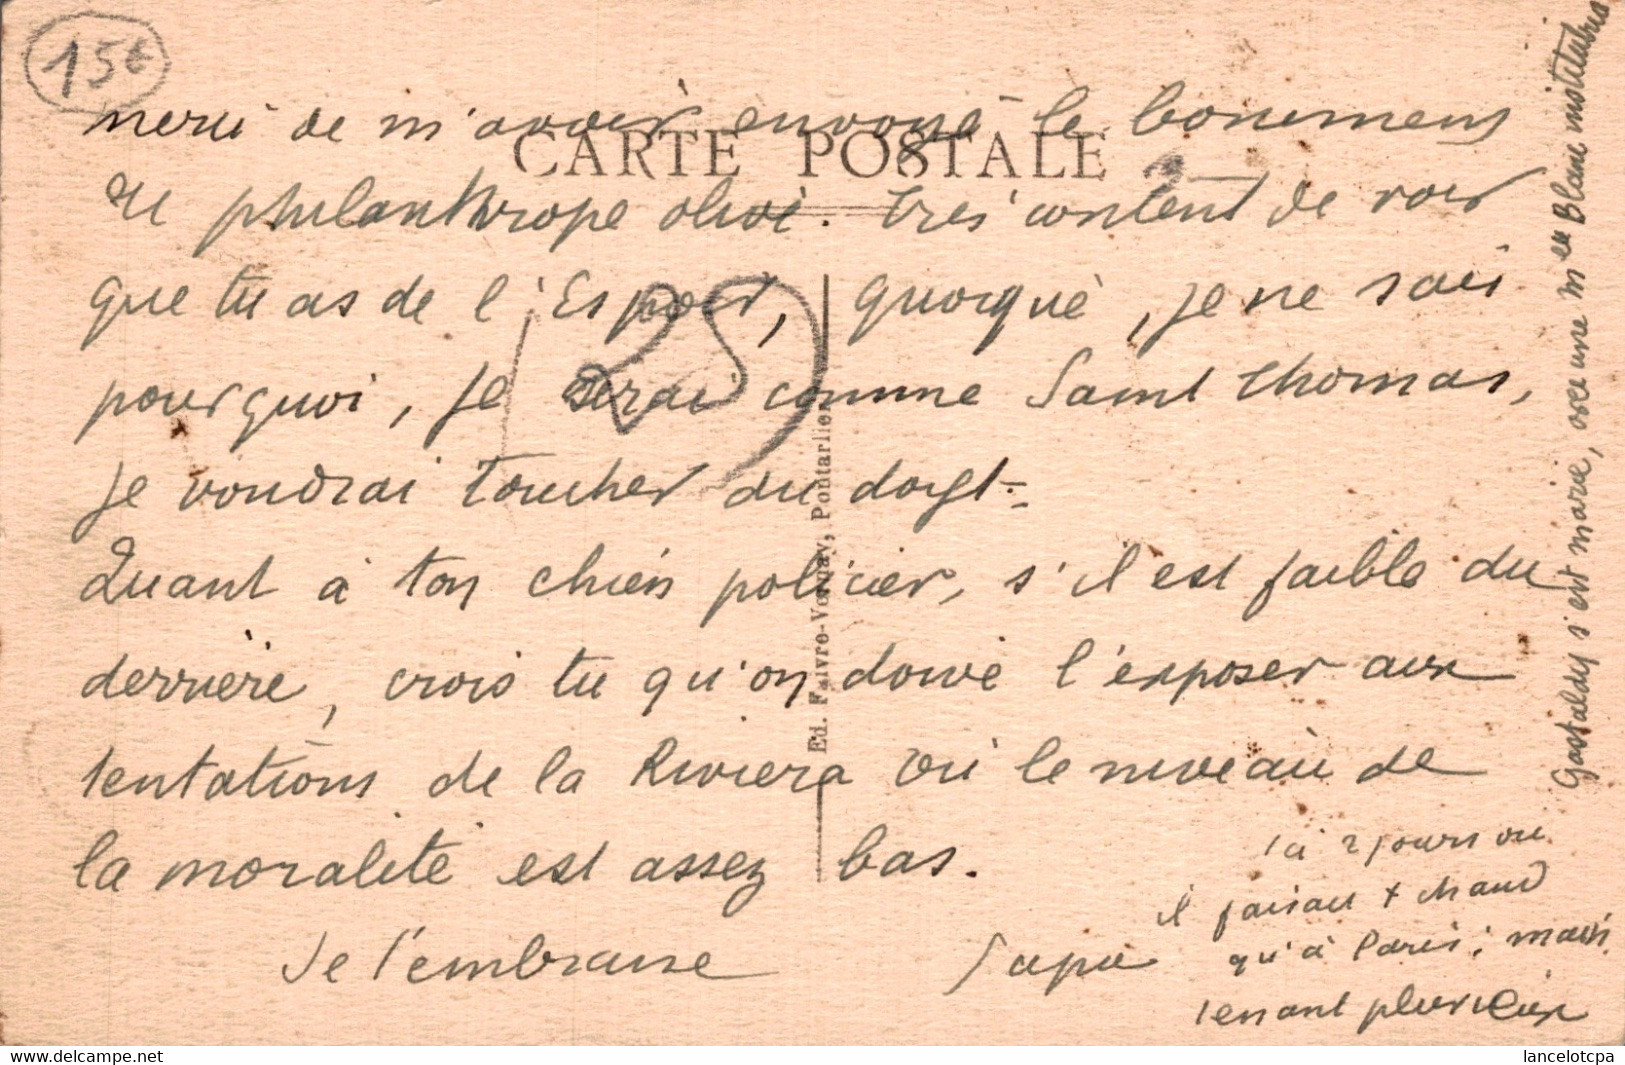 15€
CARTE POSTALE
merci de m'avoir envoyé le
du philanthrope olivi. très content de voir
que tu as de l'Espoir, quoique, je ne sais
pourquoi, je serai comme Saint Thomas,
je voudrai toucher du doigt-
Quant à ton chien policier, s'il est faible du
derrière, crois tu qu'on doive l'exposer aux
tentations de la Riviera où le niveau de
la moralité est assez bas.
Je t'embrasse
Ici 2 jours ou
il faisait + chaud
qu'à Paris; mais
tenant pluvieux
Gastaldy s'est marié, avec une Melle Blanc institutrice
25
Ed. Faivre-Vernay, Pontarlier
lancelotcpa